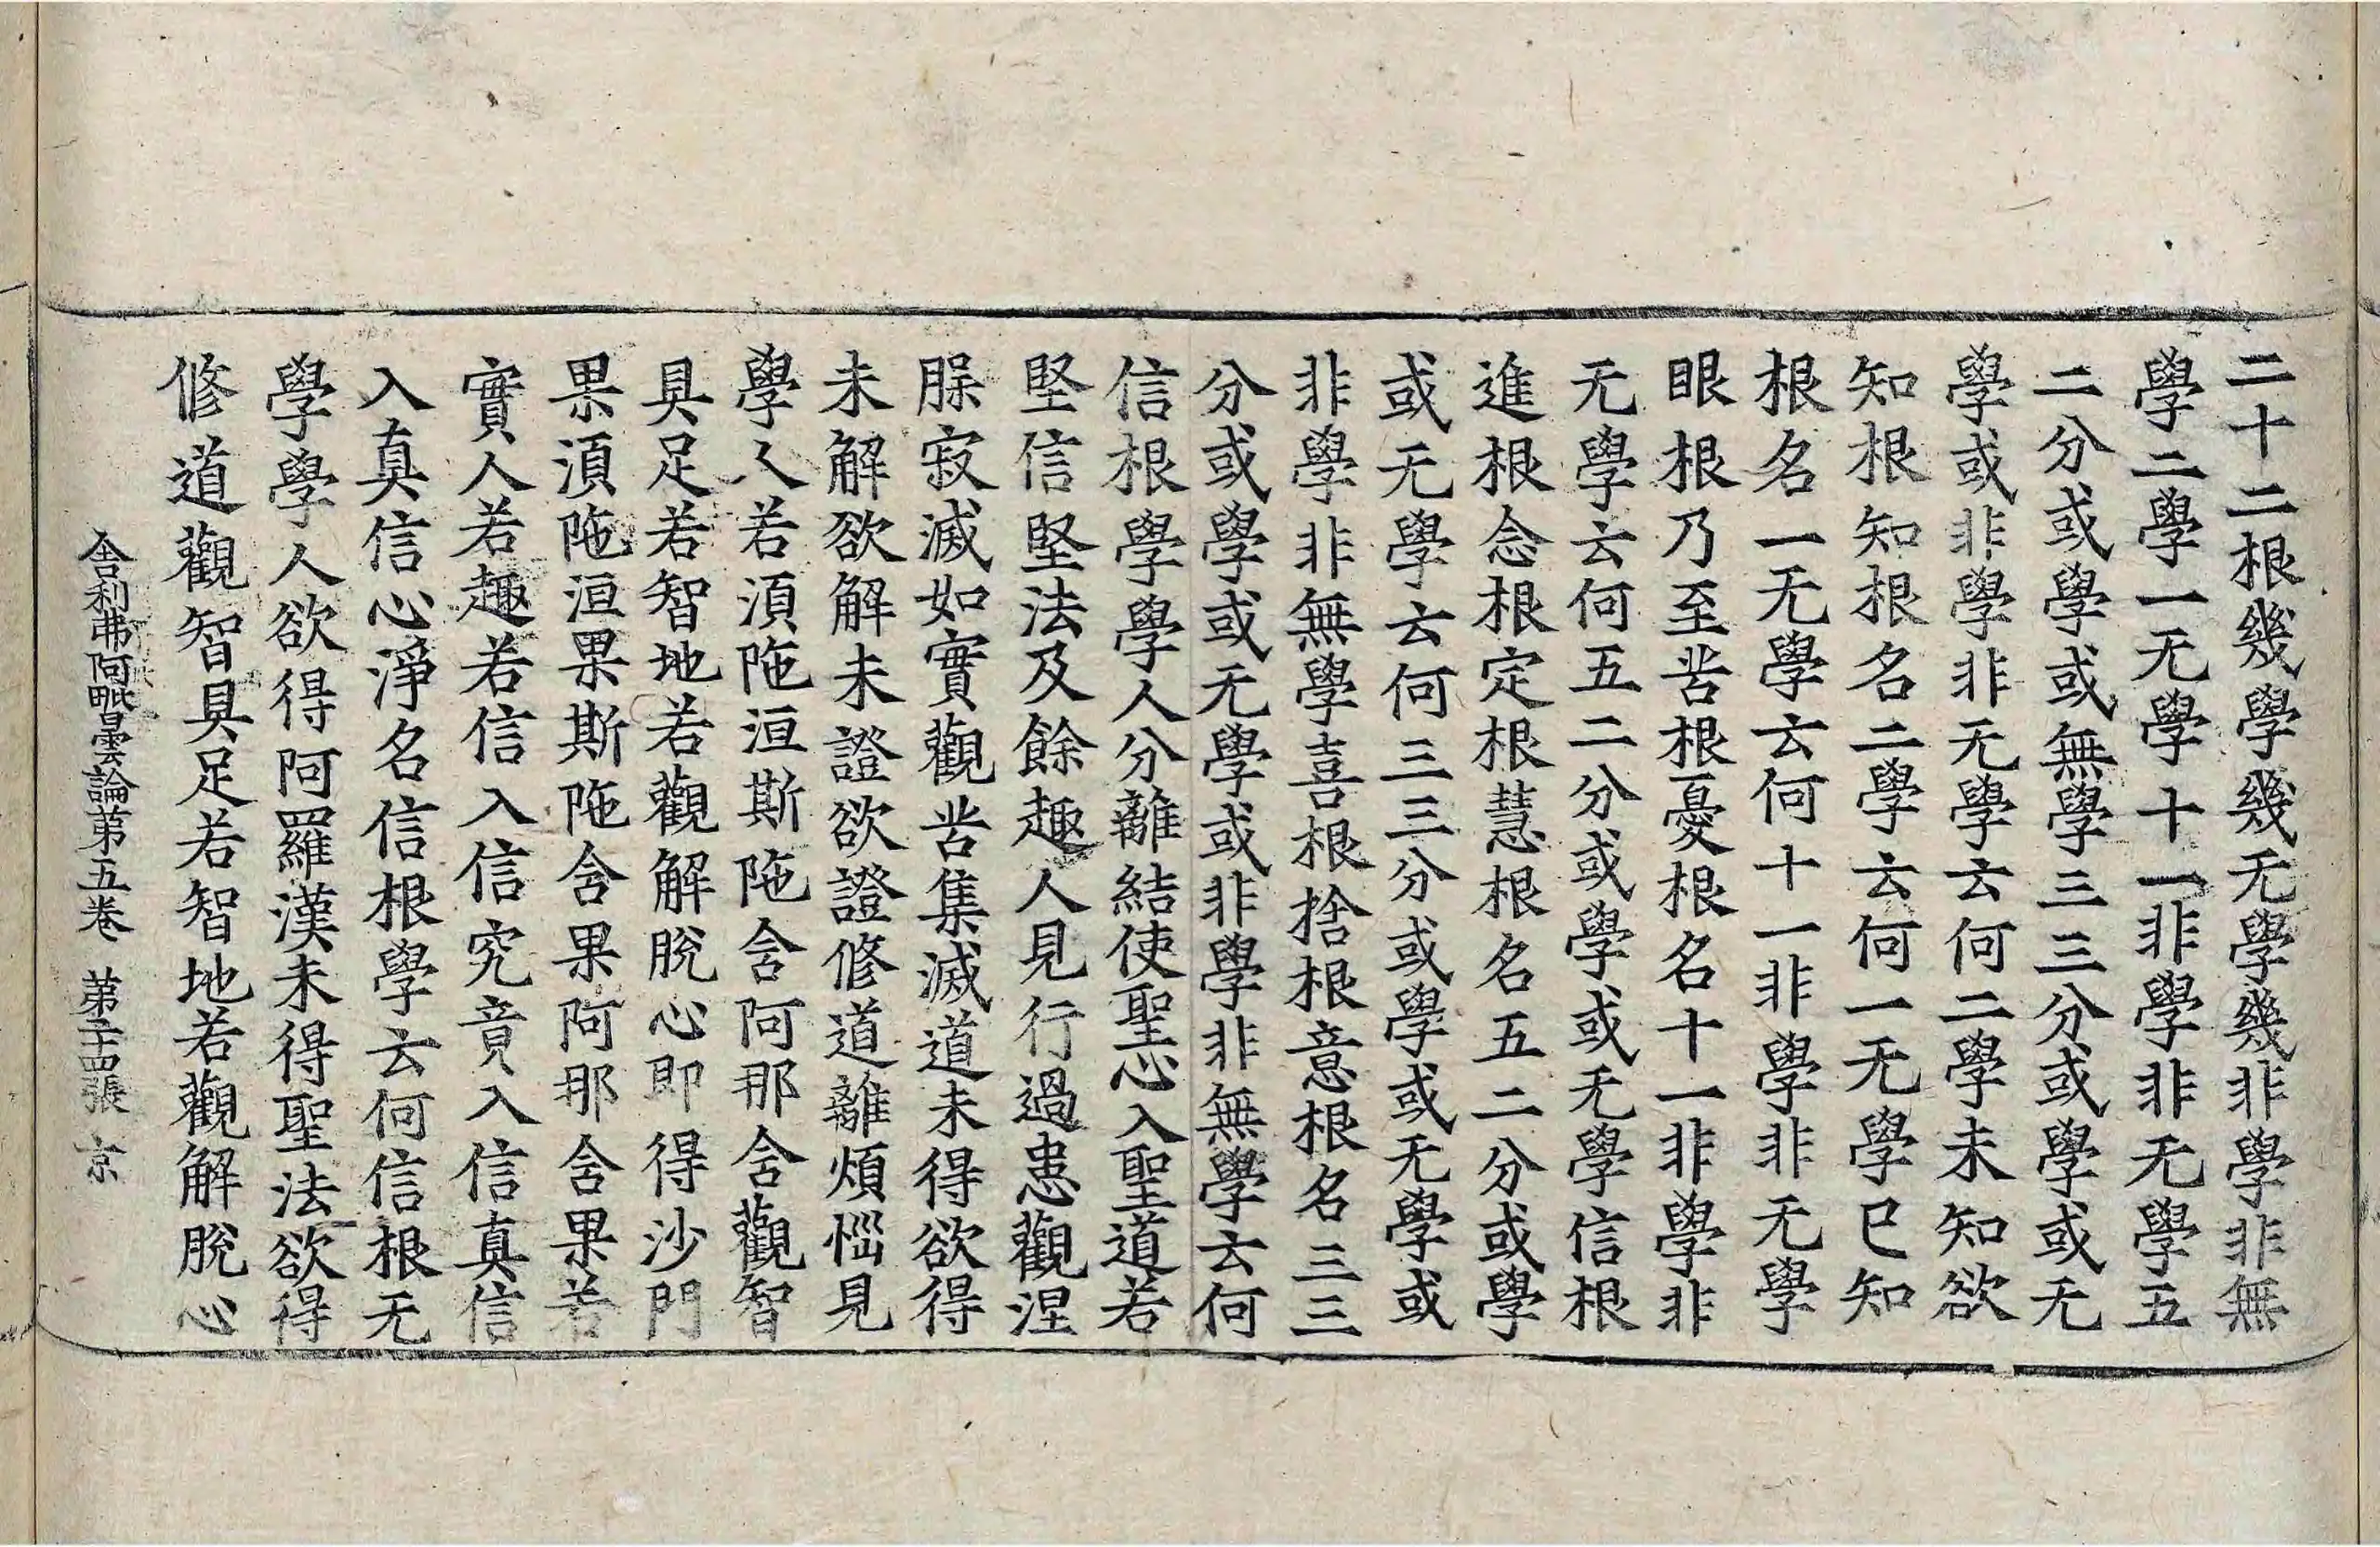 二十二根幾學幾无學幾非學非無
學二學一无學十一非學非无學五
二分或學或無學三三分或學或无
學或非學非无學云何二學未知欲
知根知根名二學云何一无學已知
根名一无學云何十一非學非无學
眼根乃至苦根憂根名十一非學非
无學云何五二分或學或无學信根
進根念根定根慧根名五二分或學
或无學云何三三分或學或无學或
非學非無學喜根捨根意根名三三
分或學或无學或非學非無學云何
信根學學人分離結使聖心入聖道若
堅信堅法及餘趣人見行過患觀涅
腺寂滅如實觀苦集滅道未得欲得
未解欲解未證欲證修道離煩惱見
學人若湏陁洹斯陁含阿那含觀智
具足若智地若觀解脫心即得沙門
果湏陁洹果斯陁含果阿那含果若
實人若趣若信入信究竟入信真信
入真信心淨名信根學云何信根无
學學人欲得阿羅漢未得聖法欲得
修道觀智具足若智地若觀解脫心
舍利弗阿毗曇論第五卷 第二十四張 京